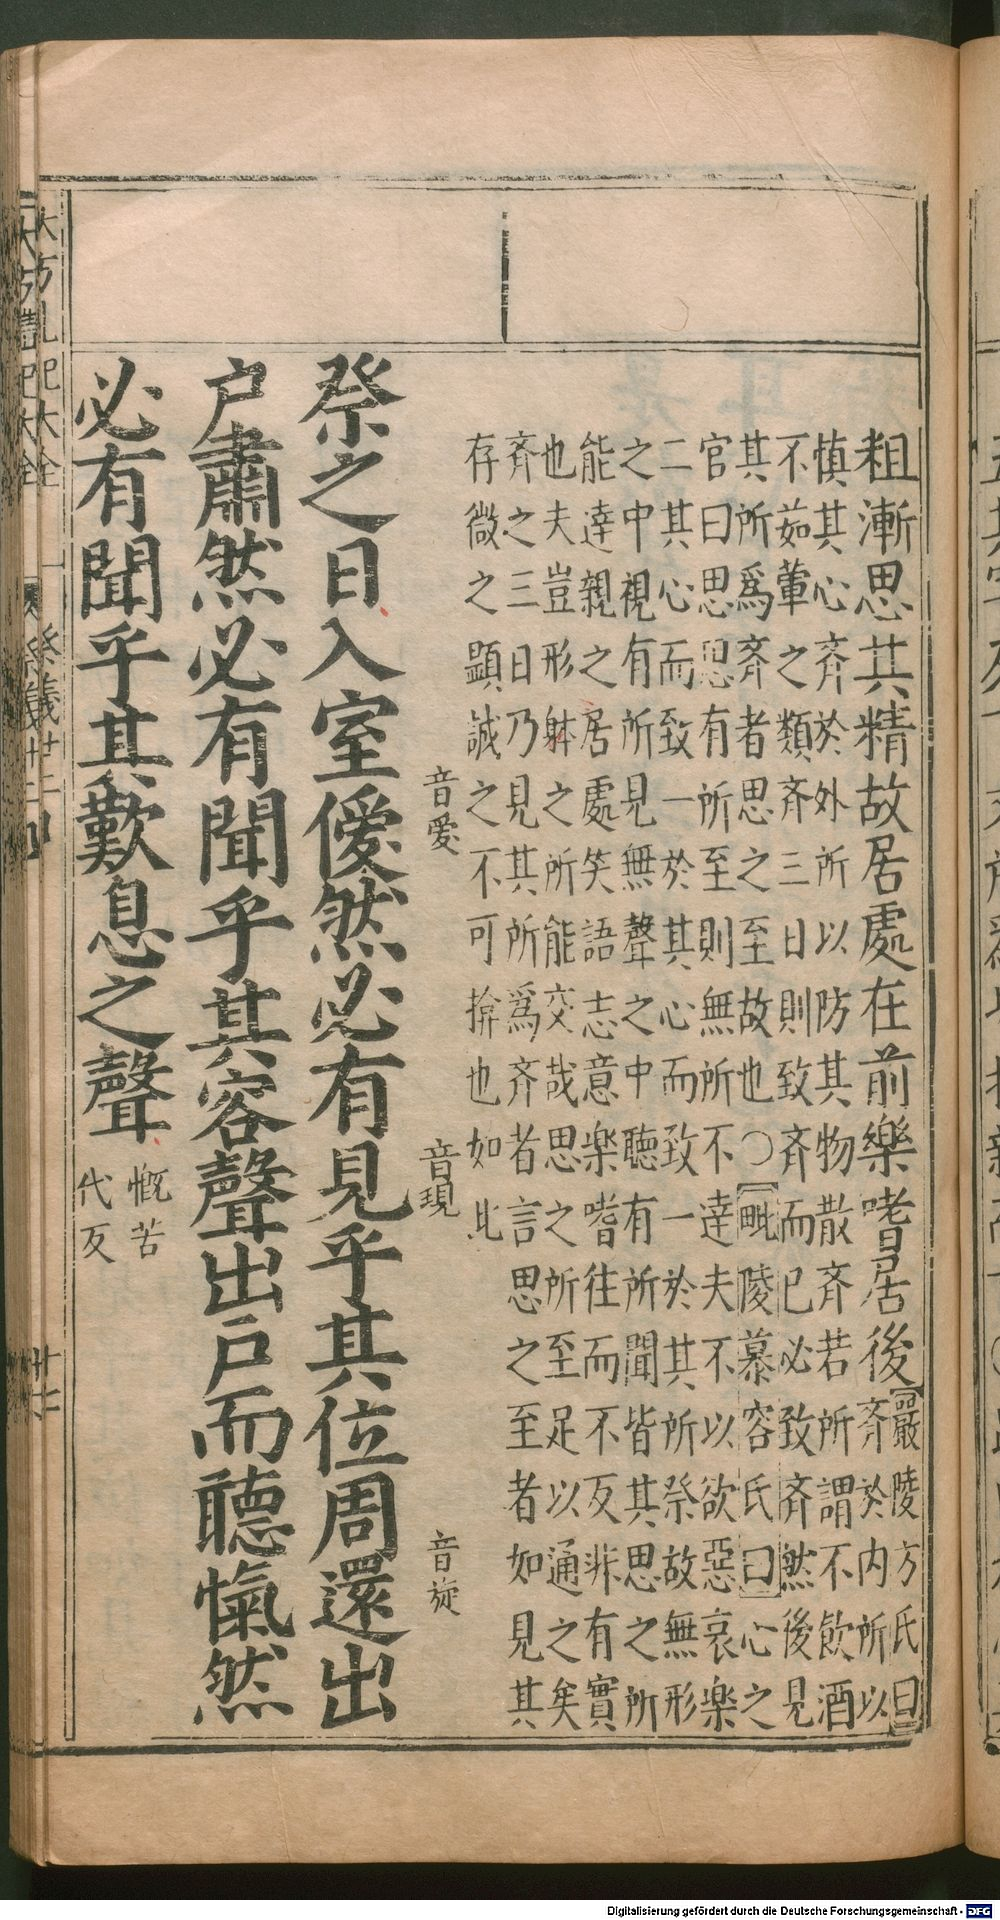 粗漸思其精故居處在前樂嗜居後
嚴陵方氏曰
齊於内所以
慎其心齊於外所以防其物散齊若所謂不飲酒
不茹葷之類齊三日則致齊而已必致齊然後見
其所爲齊者思之至故也○毗陵慕容氏曰心之
官曰思思有所至則無所不達夫不以欲惡哀楽
二其心而致一於其心而致一於其所祭故無形
之中視有所見無聲之中聽有所聞皆其思之所
能達親之居處笑語志意楽嗜往而不反非有實
也夫豈形躰之所能交哉思之所至足以通之矣
齊之三日乃見其所爲齊者言思之至者如見其
存微之顯誠之不可揜也如此
音愛
音現
音旋
祭之日入室僾然必有見乎其位周還出
户肅然必有聞乎其容聲出戸而聽愾然
必有聞乎其歎息之聲
慨苦
代反
大方礼記大全 祭義廿二
Digitalisierung gefördert durch die Deutsche Forschungsgemeinschaft - DFG